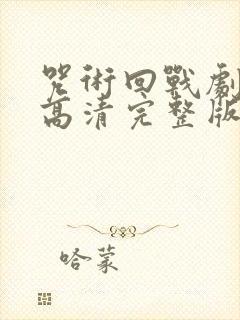 咒術回戰劇
高清完整版
哈蒙